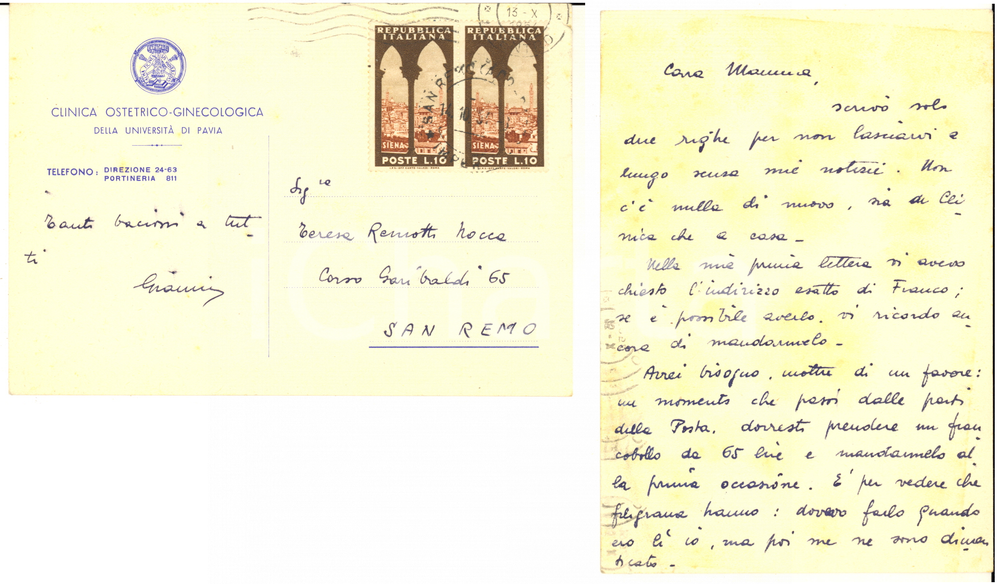 CLINICA OSTETRICO-GINECOLOGICA
DELLA UNIVERSITÀ DI PAVIA
TELEFONO: DIREZIONE 24-63
PORTINERIA 811
13-X
REPUBBLICA ITALIANA
SIENA
POSTE L.10
REPUBBLICA ITALIANA
SIENA
POSTE L.10
SAN REMO
Tanti bacioni a tut-
ti
Gianni
Sig.ra
Teresa Remotti Nocca
Corso Garibaldi 65
SAN REMO
Cara Mamma,
scrivo solo
due righe per non lasciarvi a
lungo senza mie notizie. Non
c'è nulla di nuovo, sia di Cli-
nica che a casa -
Nella mia prima lettera vi avevo
chiesto l'indirizzo esatto di Franco;
se è possibile averlo, vi ricordo an-
cora di mandarmelo -
Avrei bisogno, inoltre di un favore:
un momento che passi dalle parti
della Posta, dovresti prendere un fran
cobollo da 65 lire e mandarmelo al
la prima occasione. È per vedere che
filigrana hanno: dovevo farlo quando
ero lì io, ma poi me ne sono dimen
ticato -